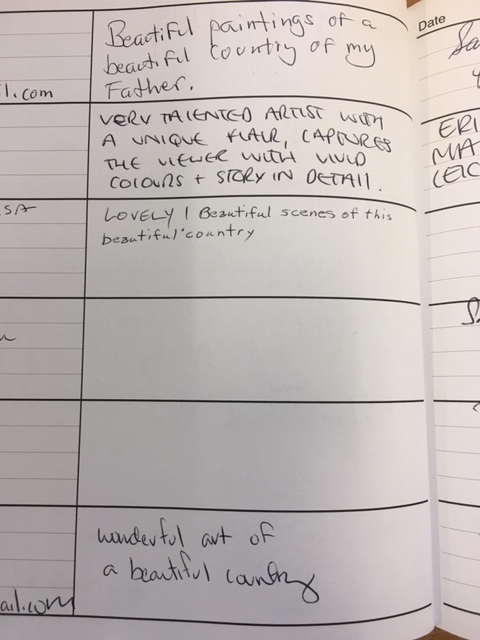 Beautiful paintings of a
beautiful country of my
Father.
il.com
VERY TALENTED ARTIST WITH
A UNIQUE FLAIR, CAPTURES
THE VIEWER WITH VIVID
COLOURS + STORY IN DETAIL.
SA
LOVELY! Beautiful scenes of this
beautiful country
wonderful art of
a beautiful country
ail.com
Date
ERI
MA